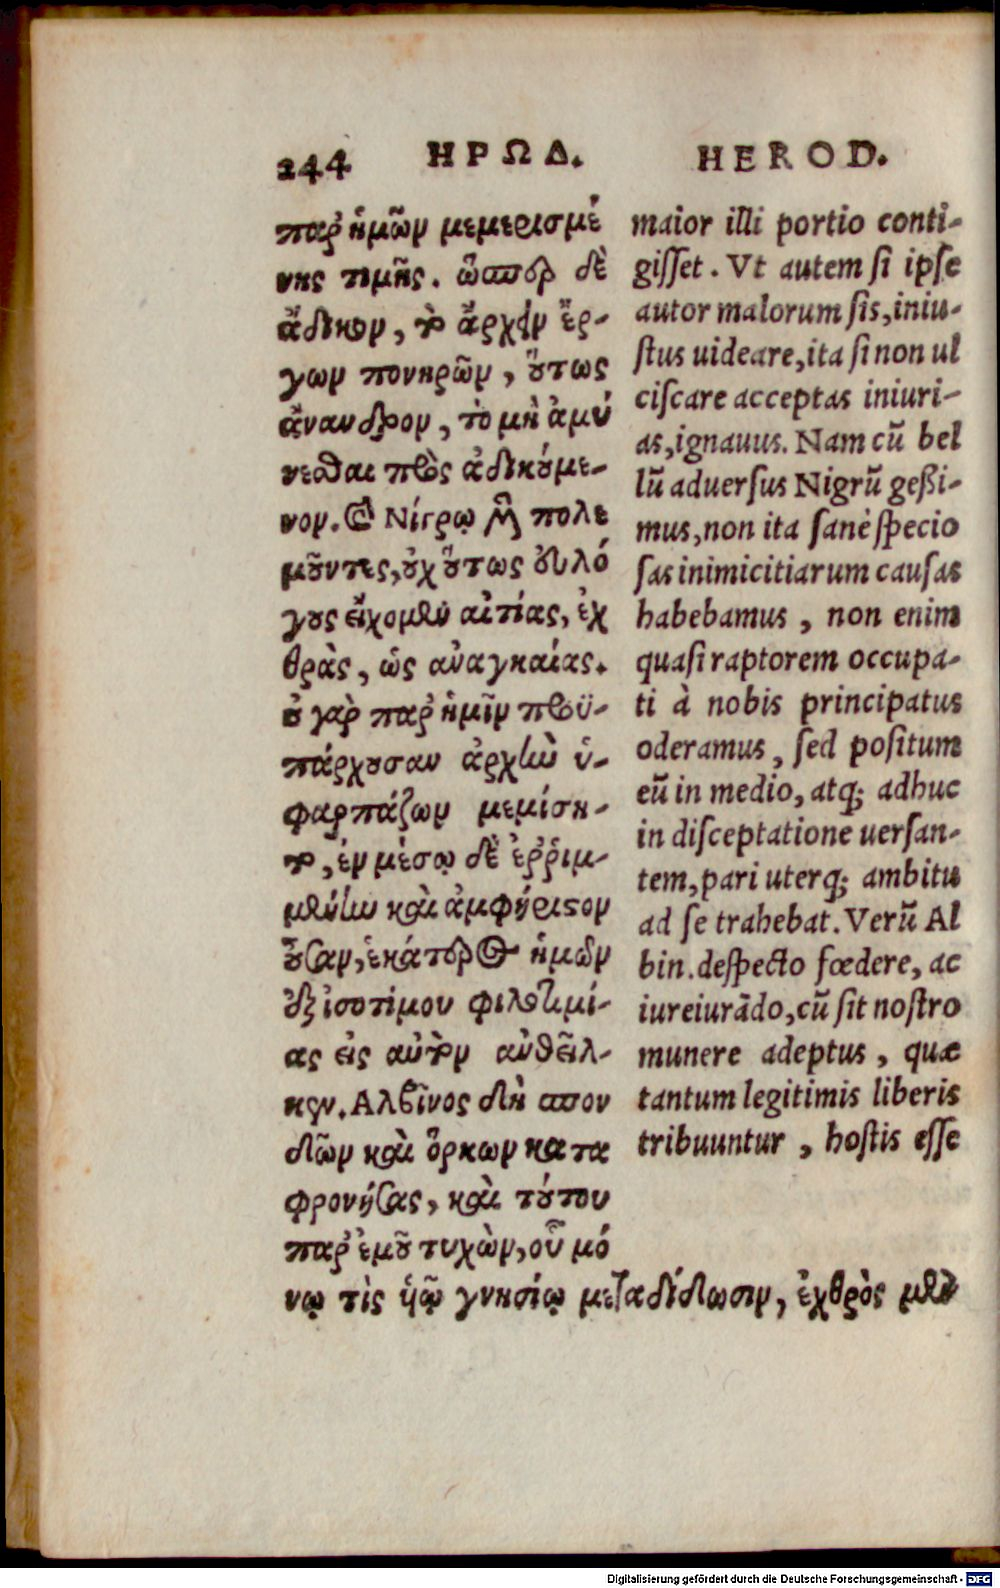 244 ΗΡΩΔ. HEROD.
παρ' ἡμῶν μεμερισμέ
νης τιμῆς. ὥσπερ δὲ
ἄδικον, τὸ ἄρχειν ἔρ-
γων πονηρῶν, οὕτως
ἄνανδρον, τὸ μὴ ἀμύ
νεσθαι προς ἀδικούμε-
νον. καὶ Νίγρῳ μὲν πολε
μοῦντες, οὐχ οὕτως εὐλό
γους εἴχομεν αἰτίας, ἐχ
θρὰς, ὡς ἀναγκαίας.
οὐ γὰρ παρ' ἡμῖν προϋ-
πάρχουσαν ἀρχὴν ὑ-
φαρπάζων μεμίση-
το, ἐν μέσῳ δὲ ἐῤῥιμ-
μένην καὶ ἀμφήριστον
οὖσαν, ἑκάτερος ἡμῶν
ἐξ ἰσοτίμου φιλοτιμί-
ας εἰς αὑτὸν ἀνθεῖλ-
κεν. Αλβῖνος δὴ σπον
δῶν καὶ ὅρκων κατα
φρονήσας, καὶ τούτου
παρ' ἐμοῦ τυχὼν, οὗ μό
νῳ τὶς ὑῷ γνησίῳ μεταδίδωσιν, ἐχθρὸς μὲν
maior illi portio conti-
gisset. Vt autem si ipse
autor malorum sis, iniu-
stus uideare, ita si non ul
ciscare acceptas iniuri-
as, ignauus. Nam cū bel
lū aduersus Nigrū gessi-
mus, non ita sanè specio
sas inimicitiarum causas
habebamus, non enim
quasi raptorem occupa-
ti à nobis principatus
oderamus, sed positum
eū in medio, atq; adhuc
in disceptatione uersan-
tem, pari uterq; ambitu
ad se trahebat. Verū Al
bin. despecto fœdere, ac
iureiurādo, cū sit nostro
munere adeptus, quæ
tantum legitimis liberis
tribuuntur, hostis esse
Digitalisierung gefördert durch die Deutsche Forschungsgemeinschaft - DFG